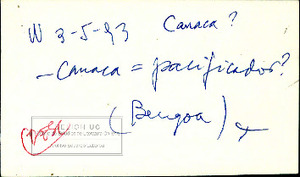 W 3-5-93 Canaca?
- Canaca = pacificador?
(Bengoa)